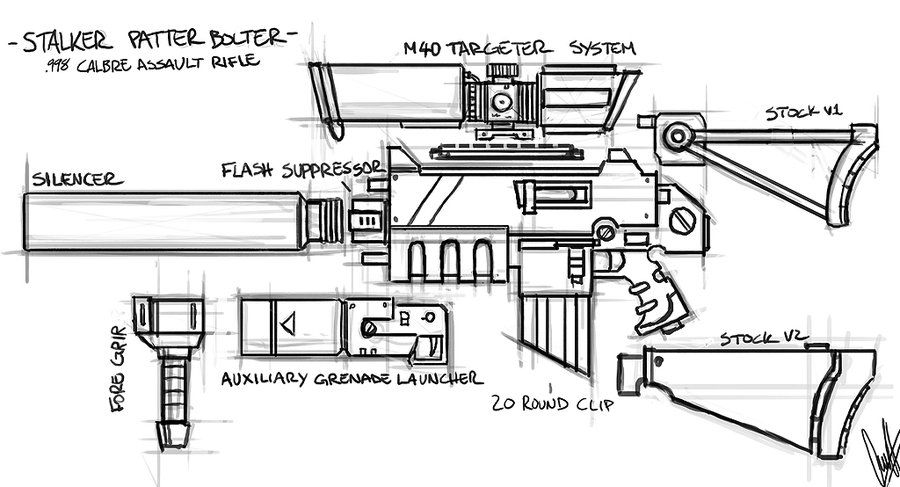 -STALKER PATTER BOLTER-
.998 CALBRE ASSAULT RIFLE
M40 TARGETER SYSTEM
STOCK V.1
FLASH SUPPRESSOR
SILENCER
FORE GRIP
AUXILIARY GRENADE LAUNCHER
20 ROUND CLIP
STOCK V2